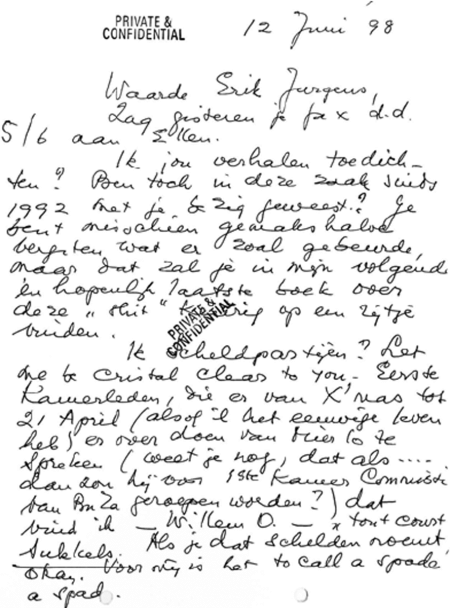 PRIVATE &
CONFIDENTIAL
12 Juni 98
Waarde Erik Jurgens,
Zag gisteren je fax d.d.
5/6 aan Ellen.
Ik jou verhalen toedich-
ten? Ben toch in deze zaak sinds
1992 met je bezig geweest? Je
bent misschien gemakshalve
vergeten wat er zoal gebeurde,
maar dat zal je in mijn volgend
en hopenlijk laatste boek over
deze "shit" op een rijtje
PRIVATE &
CONFIDENTIAL
vinden.
Ik scheldpartijen? Let
me be cristal clear to you. Eerste
Kamerleden, die er van X'mas tot
21 April (alsof ik het eeuwige leven
heb) er over doen van Mierlo te
spreken (weet je nog, dat als ....
dan zou hij voor 1ste Kamer Commissie
van BuZa geroepen worden?) dat
vind ik — Willem O. — tout court
sukkels. Als je dat schelden noemt,
okay. Voor mij is het to call a spade
a spad.